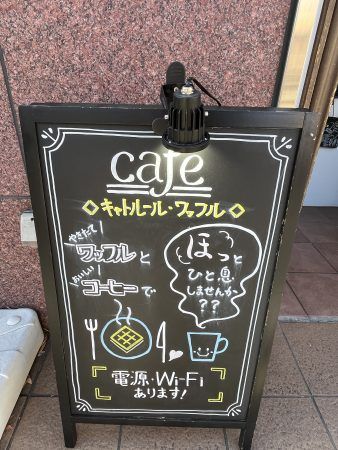 cafe
キャトルール・ワッフル
やきたて！
ワッフルと
おいしい
コーヒーで
ほっと
ひと息
しませんか
？？
電源・Wi-Fi
あります！